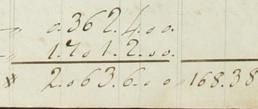 0.3624.00.
1.7012.00.
2.0636.00 168.38